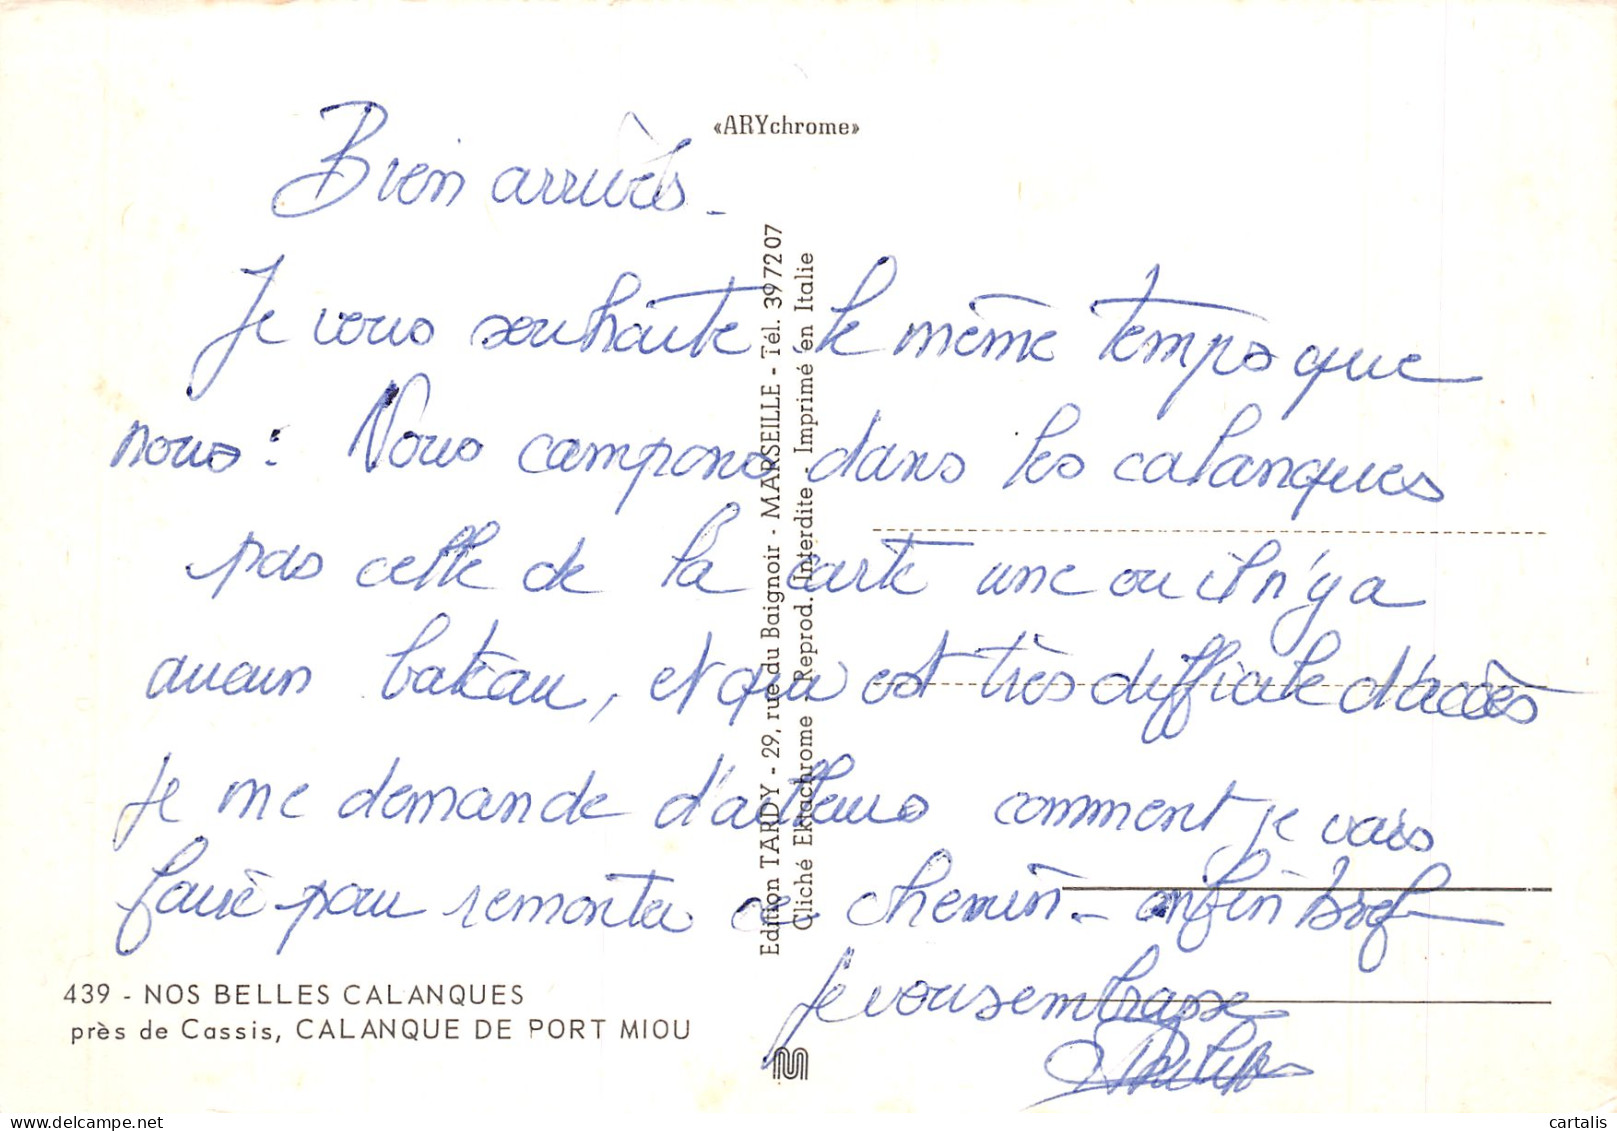 «ARYchrome»
Bien arrivés.
Je vous souhaite le même temps que
nous : Nous campons dans les calanques
pas celle de la carte une ou il n'y a
aucun bateau, et qui est très difficile d'accès
je me demande d'ailleurs comment je vais
faire pour remonter ce chemin - enfin bref
je vous embrasse
Philippe
439 - NOS BELLES CALANQUES
près de Cassis, CALANQUE DE PORT MIOU
Edition TARDY - 29, rue du Baignoir - MARSEILLE - Tél. 39 72 07
Cliché Ektachrome - Reprod. Interdite - Imprimé en Italie
cartalis